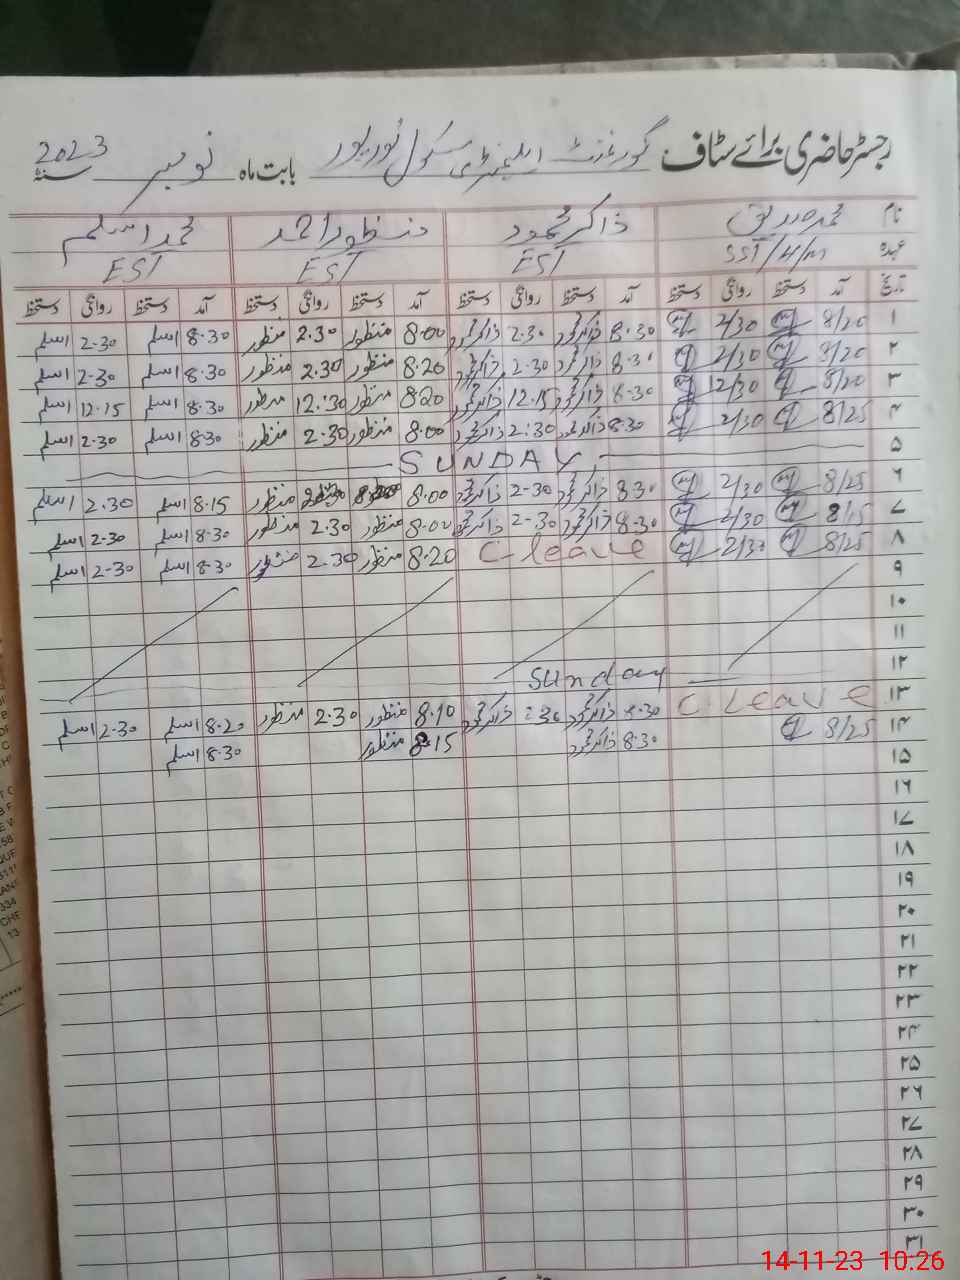 رجسٹر حاضری برائے سٹاف گورنمنٹ ایلیمنٹری سکول نور پور بابت ماہ نومبر سنہ 2023
نام محمد صدیق ذاکر محمود منظور احمد محمد اسلم
عہدہ SST/4/m EST EST EST
تاریخ آمد دستخط روانگی دستخط آمد دستخط روانگی دستخط آمد دستخط روانگی دستخط آمد دستخط روانگی دستخط
۱ 8/20 2/30 8.30 ذاکر محمود 2.30 ذاکر محمود 8.00 منظور 2.30 منظور 8.30 اسلم 2.30 اسلم
۲ 8/20 2/30 8.30 ذاکر محمود 2-30 ذاکر محمود 8.20 منظور 2.30 منظور 8.30 اسلم 2-30 اسلم
۳ 8/20 12/30 8.30 ذاکر محمود 12.15 ذاکر محمود 8.20 منظور 12.30 منظور 8.30 اسلم 12.15 اسلم
۴ 8/25 2/30 8.30 ذاکر محمود 2:30 ذاکر محمود 8.00 منظور 2.30 منظور 8.30 اسلم 2.30 اسلم
۵ SUNDAY
۶ 8/25 2/30 8.30 ذاکر محمود 2-30 ذاکر محمود 8.00 منظور 8.15 اسلم 2.30 اسلم
۷ 8/15 2/30 8.30 ذاکر محمود 2-30 ذاکر محمود 8.00 منظور 2.30 منظور 8.30 اسلم 2.30 اسلم
۸ 8/25 2/30 C-leave 8.20 منظور 2.30 منظور 8.30 اسلم 2-30 اسلم
۹
۱۰
۱۱
۱۲ Sunday
۱۳ C Leave 8.30 ذاکر محمود ذاکر محمود 8.10 منظور 2.30 منظور 8.20 اسلم 2.30 اسلم
۱۴ 8/25 8.30 ذاکر محمود 8.15 منظور 8.30 اسلم
۱۵
۱۶
۱۷
۱۸
۱۹
۲۰
۲۱
۲۲
۲۳
۲۴
۲۵
۲۶
۲۷
۲۸
۲۹
۳۰
۳۱
14-11-23 10:26